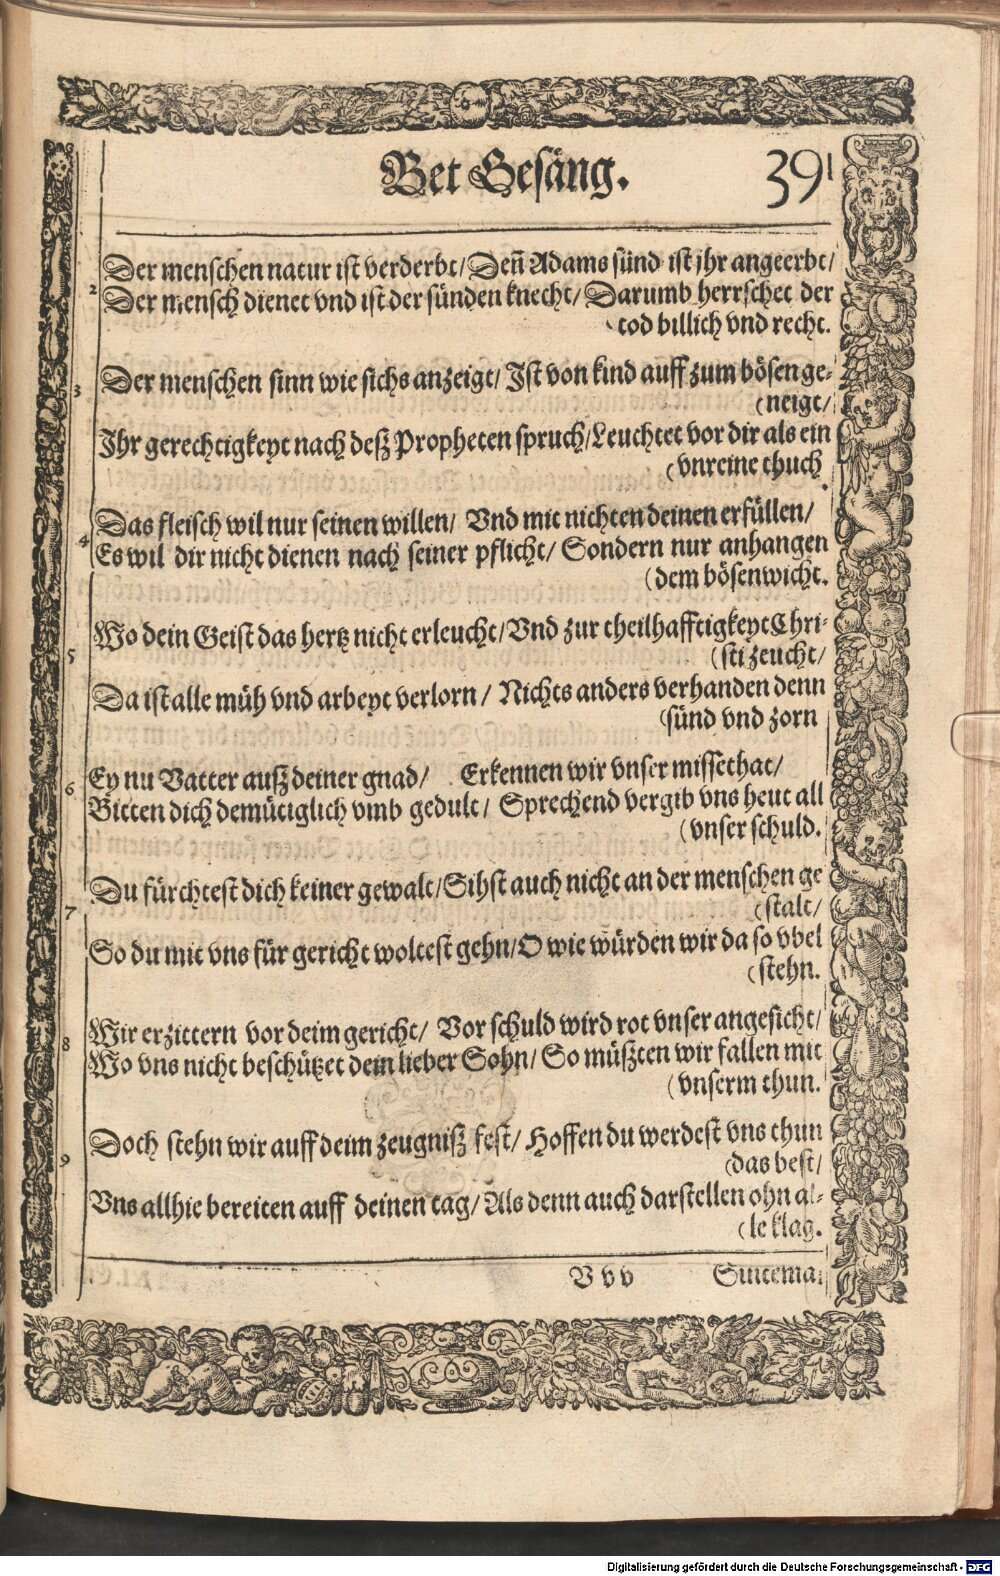 Bet Gesäng. 391
Der menschen natur ist verderbt/ Deñ Adams sünd ist jhr angeerbt/
2 Der mensch dienet vnd ist der sünden knecht/ Darumb herrschet der
(tod billich vnd recht.
3 Der menschen sinn wie sichs anzeigt/ Ist von kind auff zum bösen ge-
(neigt/
Ihr gerechtigkeyt nach deß Propheten spruch/ Leuchtet vor dir als ein
(vnreine thuch.
Das fleisch wil nur seinen willen/ Vnd mit nichten deinen erfüllen/
4 Es wil dir nicht dienen nach seiner pflicht/ Sondern nur anhangen
(dem bösenwicht.
Wo dein Geist das hertz nicht erleucht/ Vnd zur theilhafftigkeyt Chri-
5 (sti zeucht/
Da ist alle müh vnd arbeyt verlorn/ Nichts anders verhanden denn
(sünd vnd zorn
6 Ey nu Vatter auß deiner gnad/ Erkennen wir vnser missethat/
Bitten dich demütiglich vmb gedult/ Sprechend vergib vns heut all
(vnser schuld.
Du fürchtest dich keiner gewalt/ Sihst auch nicht an der menschen ge
7 (stalt/
So du mit vns für gericht woltest gehn/ O wie würden wir da so vbel
(stehn.
Wir erzittern vor deim gericht/ Vor schuld wird rot vnser angesicht/
8 Wo vns nicht beschützet dein lieber Sohn/ So müßten wir fallen mit
(vnserm thun.
Doch stehn wir auff deim zeugniß fest/ Hoffen du werdest vns thun
9 (das best/
Vns allhie bereiten auff deinen tag/ Als denn auch darstellen ohn al-
(le klag.
V v v Sintemal
Digitalisierung gefördert durch die Deutsche Forschungsgemeinschaft - DFG